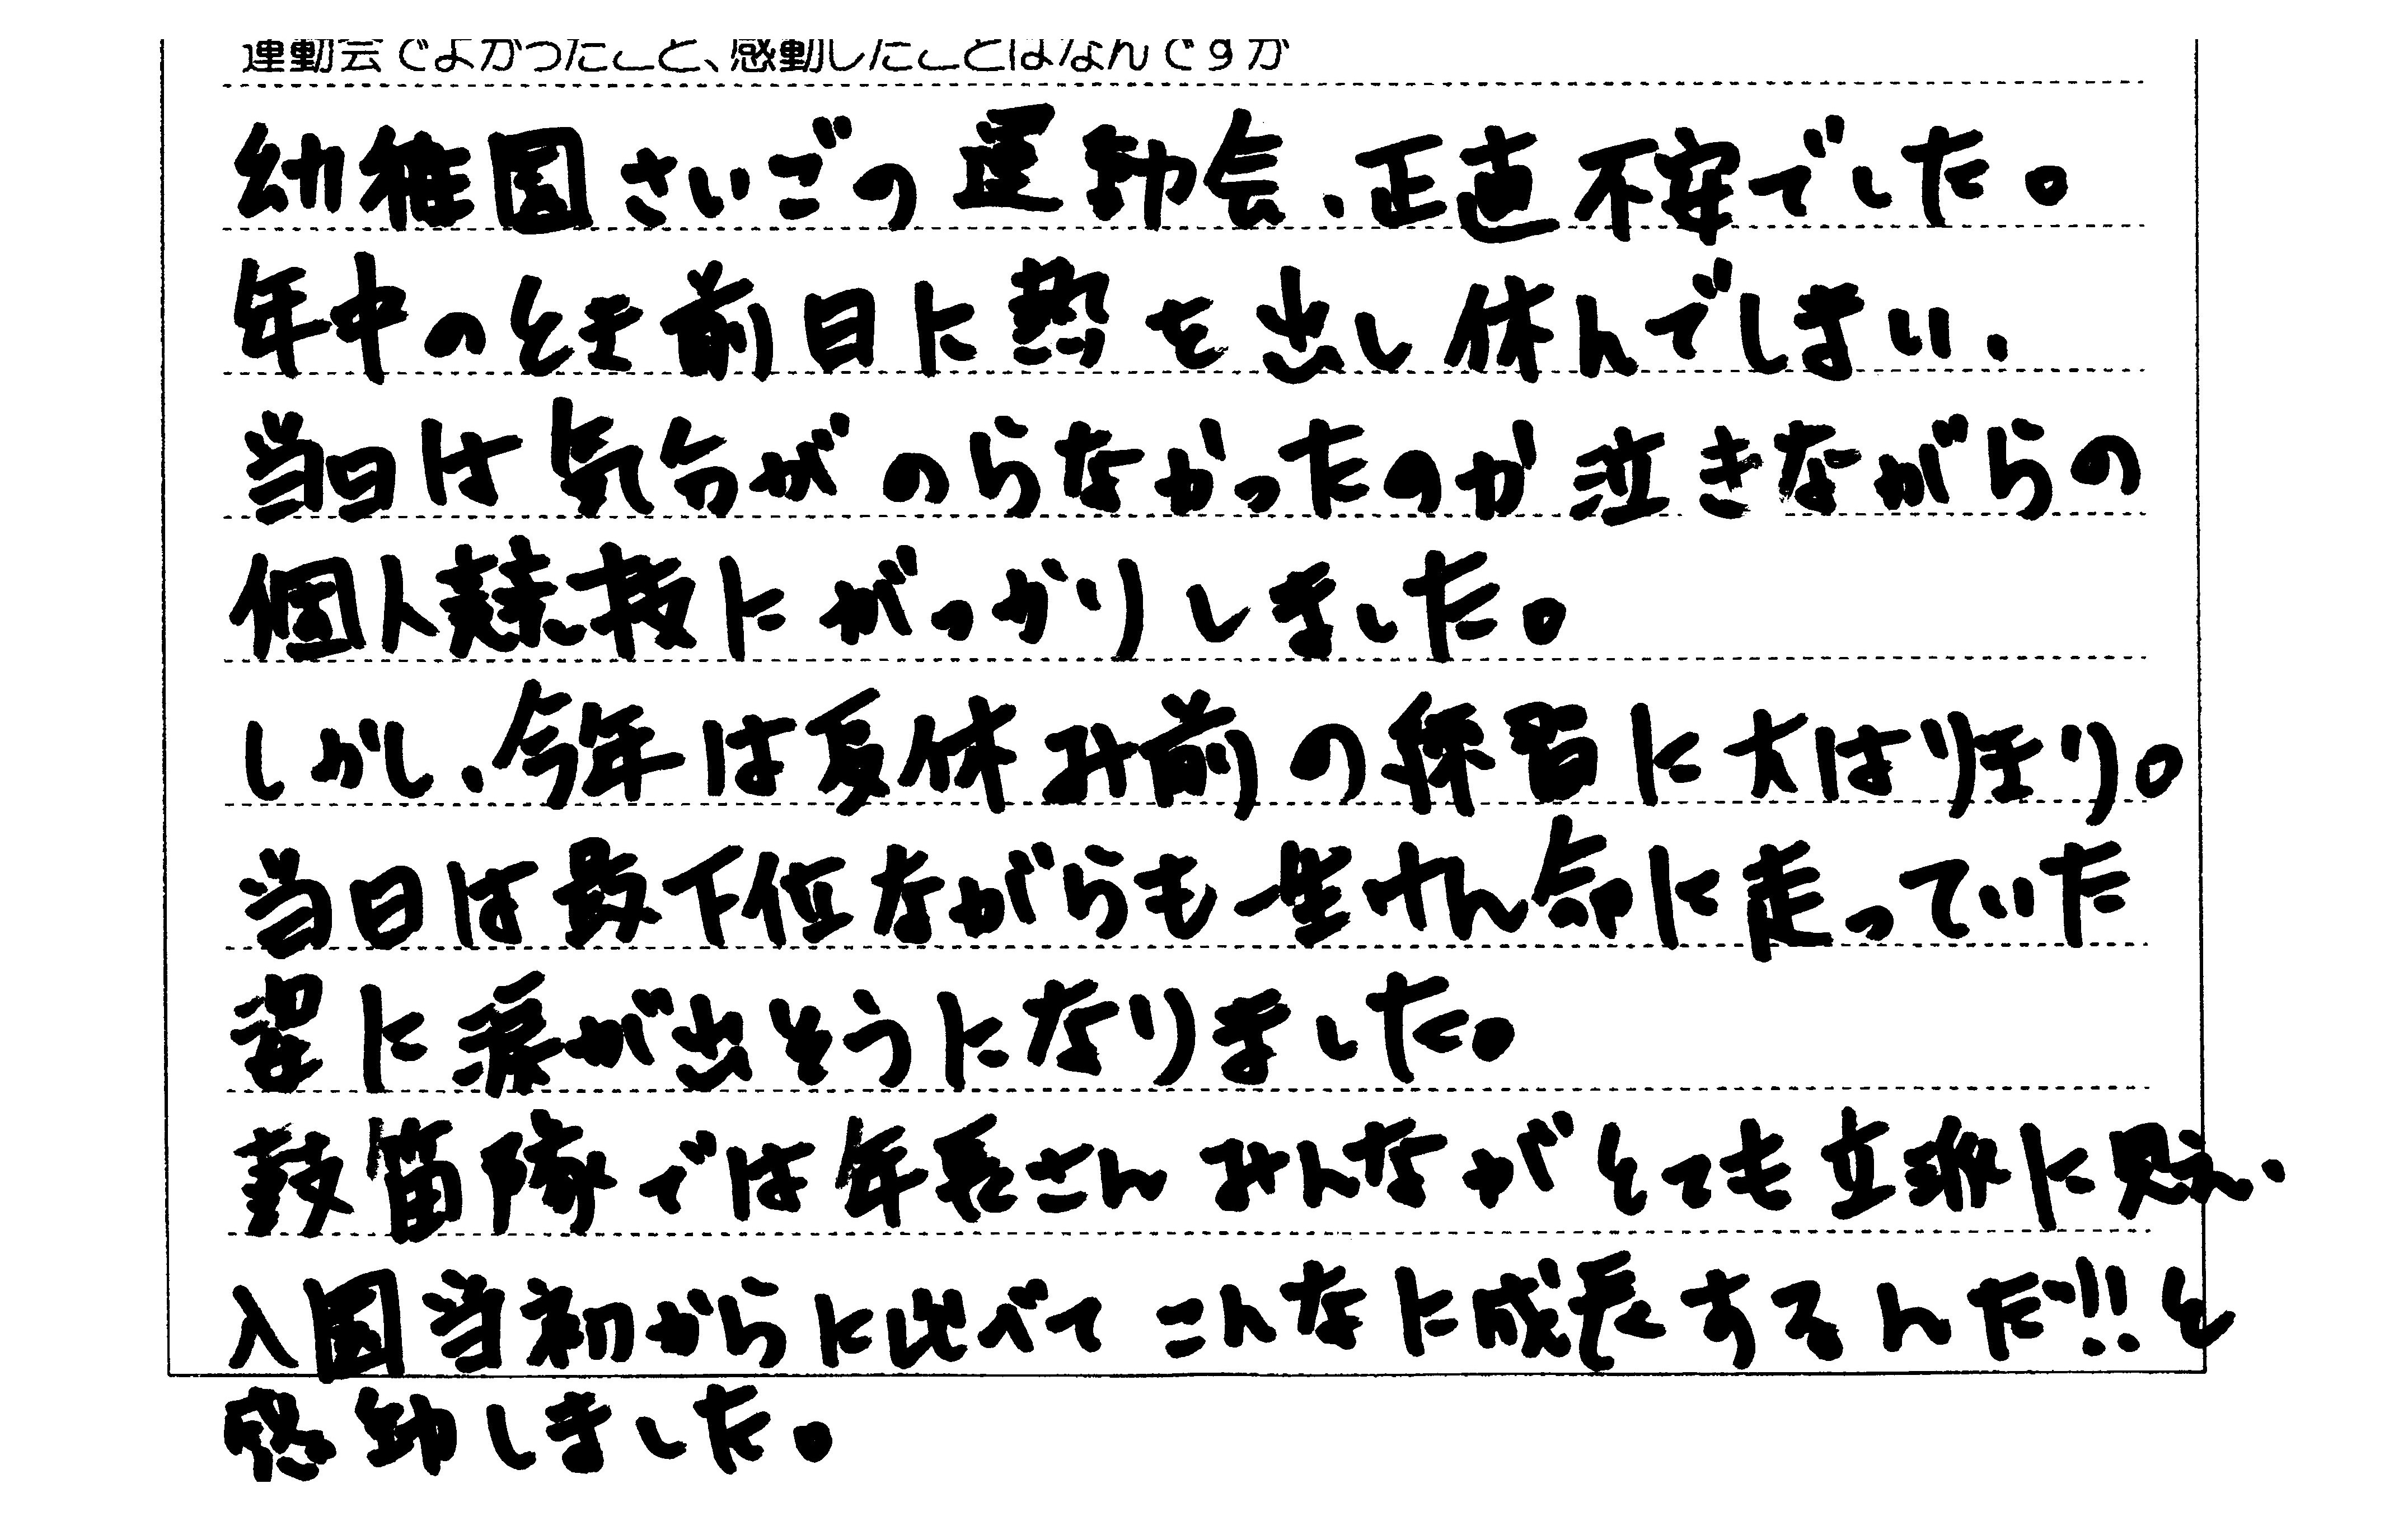 運動会でよかったこと、感動したことはなんですか
幼稚園さいごの運動会、正直不安でした。
年中のとき前日に熱を出し休んでしまい、
当日は気分がのらなかったのか泣きながらの
個人競技にがっかりしました。
しかし、今年は夏休み前の練習に大はりきり。
当日は最下位ながらも一生けん命に走っていた
姿に涙が出そうになりました。
鼓笛隊では年長さんみんながとても立派に見え、
入園当初からに比べてこんなに成長するんだ!!と
感動しました。